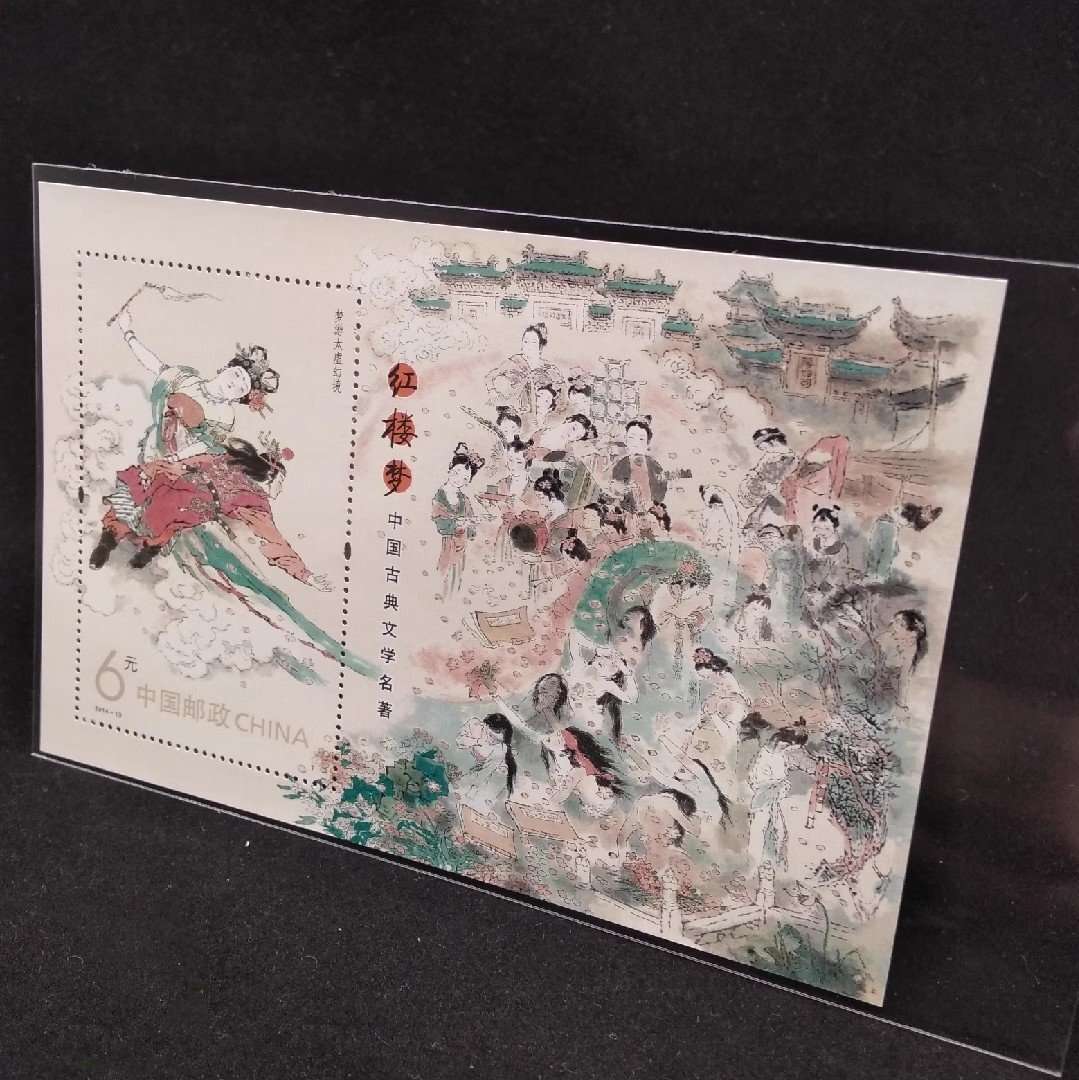 梦游太虚幻境
6元
中国邮政CHINA
2014-13
红楼梦
中国古典文学名著